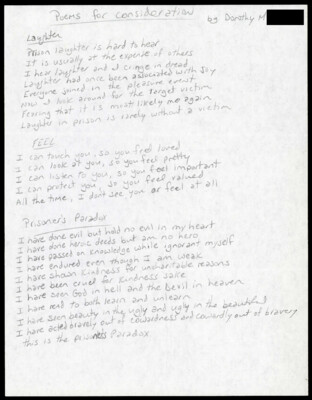 Poems for consideration by Dorothy M
Laughter
Prison laughter is hard to hear
It is usually at the expense of others
I hear laughter and I cringe in dread
Laughter had once been associated with Joy
Everyone joined in the pleasure
now I look around for the target victim
Fearing that it is most likely me again
Laughter in prison is rarely without a victim
FEEL
I can touch you, so you feel loved
I can look at you, so you feel pretty
I can listen to you, so you feel important
I can protect you, so you feel valued
All the time, I dont see you or feel at all
Prisoner's Paradox
I have done evil but hold no evil in my heart
I have done heroic deeds but am no hero
I have passed on knowledge while ignorant myself
I have endured even though I am weak
I have shown kindness for uncharitable reasons
I have been cruel for kindness sake
I have seen God in hell and the Devil in heaven
I have read to both learn and unlearn
I have seen beauty in the ugly and ugly in the beautiful
I have acted bravely out of cowardness and cowardly out of bravery
this is the Paradox